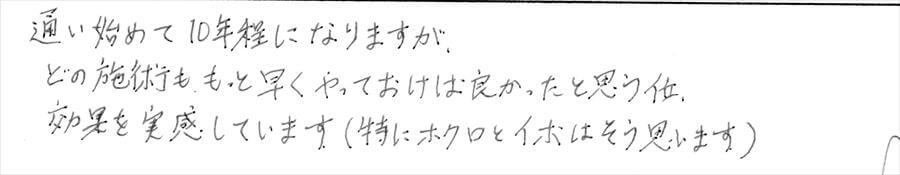 通い始めて10年程になりますが、
どの施術も、もっと早くやっておけば良かったと思う位、
効果を実感しています(特にホクロとイボはそう思います)